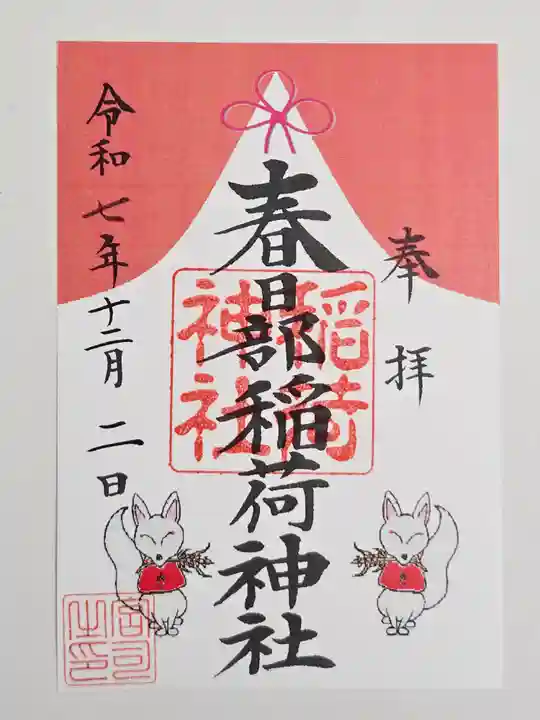 奉拝
春日部稲荷神社
稲荷神社
令和七年十二月二日
宮司之印